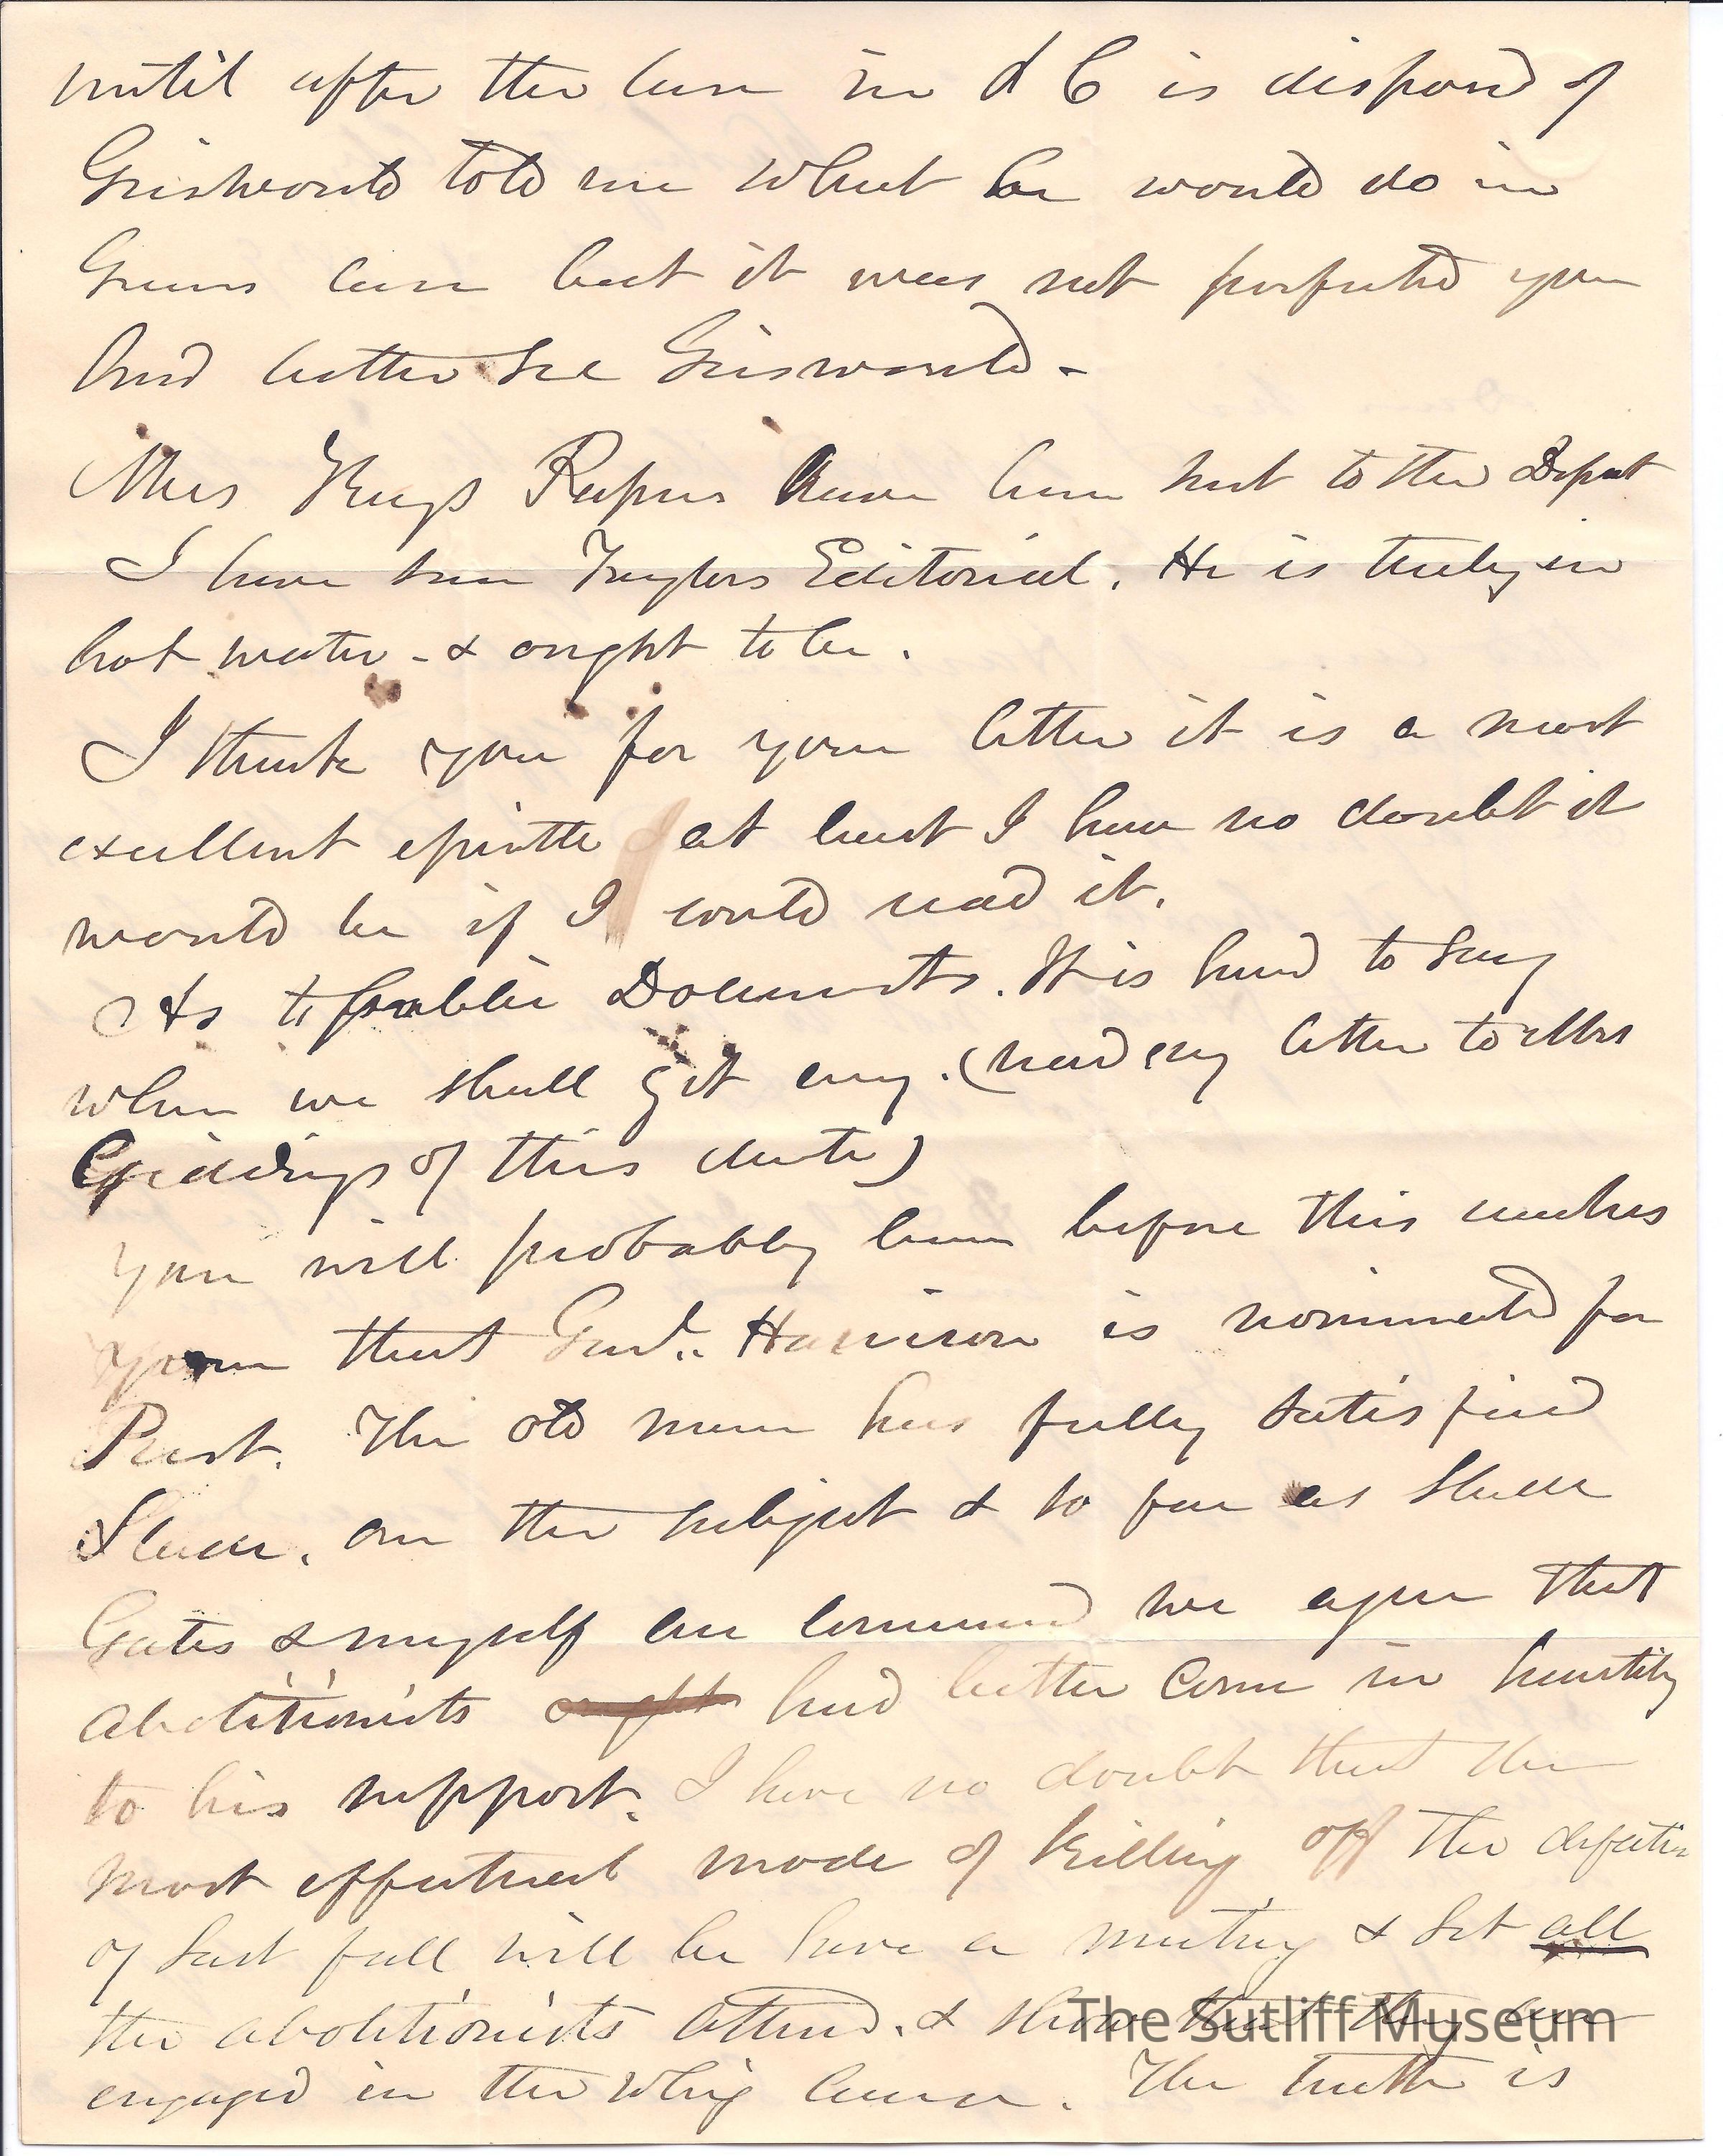 until after the case in d C is disposed of
Griswould told me what he would do in
Greens case but it was not perfected you
had better see Grisworld -
Mrs Kings Papers have been sent to the Depat
I have seen Taylors Editorial. He is truly in
hot water - & ought to be.
I thank you for your letter it is a most
excellent epistle at least I have no doubt it
would be if I could read it.
As to public Documents. It is hard to say
when we shall get any. (read my letter to Mrs
Giddings of this date)
You will probably learn before this reaches
you that Genl. Harrison is nominated for
Prest. The old man has fully satisfied
Slade, on the subject & so far as Slade
Gates & myself are concerned we agree that
abolitionists ought had better come in heartily
to his support. I have no doubt that the
most effectual mode of killing off the defection
of last fall will be have a meeting & let all
the abolitionists attend. & show that they are
engaged in the Whig cause. The truth is
The Sutliff Museum